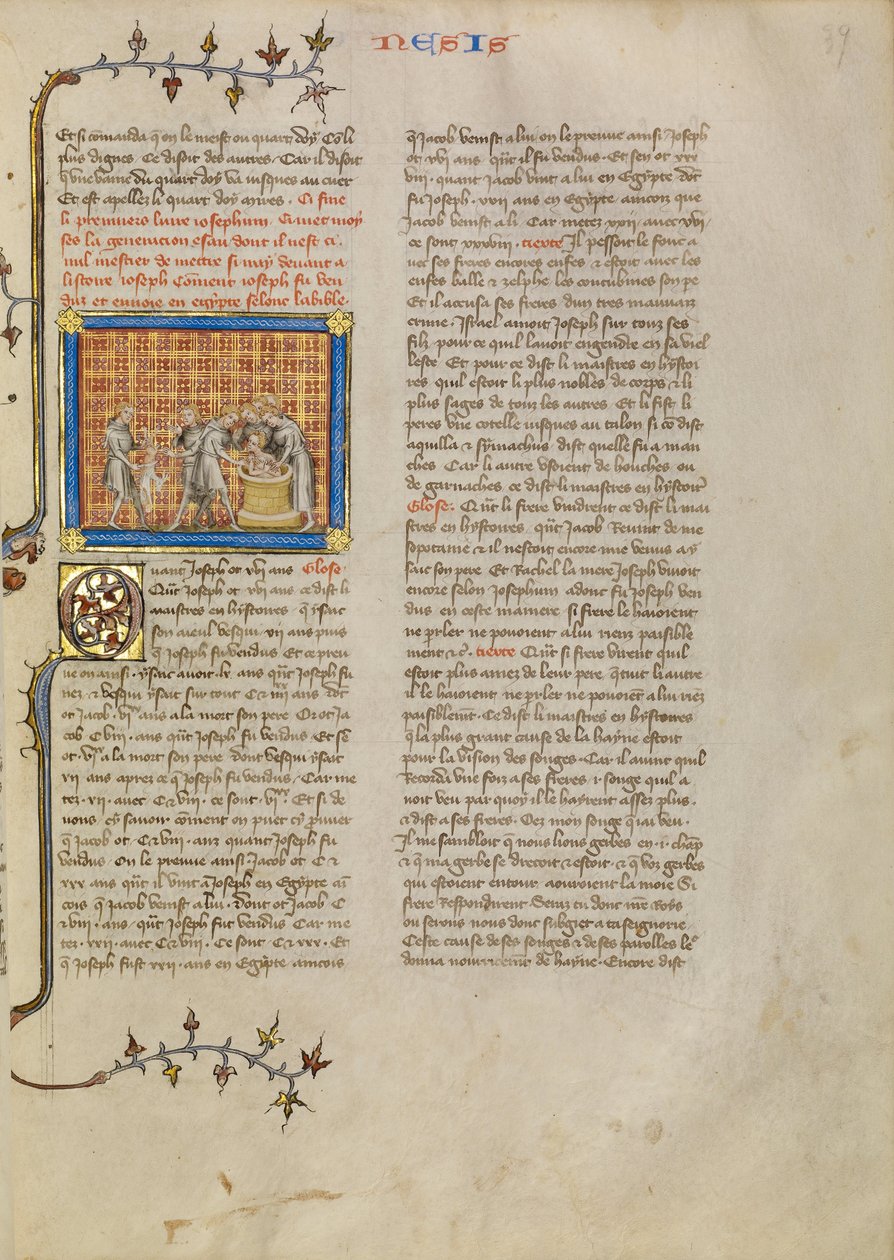 NESIS
39
Et si cōmanda q̄ on le meist ou quart doy Cō li
plus dignes Ce disoit des autres Car il disoit
q̄ vne vaine du quart doy va iusques au cuer
Et est apellez li quart doy mires . Ci fine
li premiers liure iosephum . Ci met moy
ses la generacion esau dont il nest ci.
nul mestier de mettre si may deuant a
listoire ioseph Cōment ioseph fu ven
duz et enuoie en egypte selonc labible
Quant Joseph ot xvj ans Glose
Qūt Joseph ot xvj ans ce dist li
maistres en hystoires q̄ ysaac
son aieul vesqui xij ans puis
q̄ Joseph fu vendus Et ce preu
ue on ainsi ysaac auoit lx ans qūt Joseph fu
nez
ot Jacob ans a la mort son pere Or ot Ja
cob C viij ans qūt Joseph fu vendus Et sē
ot a la mort son pere dont vesqui ysaac
xij ans aprez ce q̄ Joseph fu vendus Car me
tez xij auec C & viij ce sont Et si de
uons cy sauoir cōment on puet cy prouuer
q̄ Jacob ot C & viij anz quant Joseph fu
vendus On le preuue ainsi Jacob ot C &
xxx ans qūt il vint a Joseph en Egypte ai
cois q̄ Jacob venist a lui . Dont ot Jacob C
& viij . ans . qūt Joseph fut vendus Car me
tez . xxij . auec C & viij . Ce sont C & xxx . Et
q̄ Joseph fust xxij . ans en Egipte aincois
q̄ Jacob venist a lui on le preuue ainsi Joseph
ot xvj ans qūt il fu vendus . Et sen ot xxx
viij . quant Jacob vint a lui en Egypte dōt
fu Joseph . xxij ans en Egypte aincoiz que
Jacob venist a li . Car metez xxij . auec xvj .
ce sont xxxviij . tiexte Il pessoit le fouc a
uec ses freres encores enfes & estoit auec les
enfes balle & zelphe les concubines son pe
Et il accusa ses freres dun tres mauuaiz
crime . Israel amoit Joseph sur touz ses
filz pour ce quil lauoit engendre en sa viel
lesce Et pour ce dist li maistres en hystoi
res quil estoit li plus nobles de corps & li
plus sages de touz les autres Et li fist li
peres vne cotelle iusques au talon si cō dist
aquilla & symachus dist quelle fu a man
ches Car li autre vsoient de houches ou
de garnaches ce dist li maistres en hystoir
Glose . Qūt li frere vindrent ce dist li mai
stres en hystoires qūt Jacob Reuint de me
sopotaine & il nestoit encore mie venus a y
saac son pere Et Rachel la mere Joseph viuoit
encore selon Josephum adonc fu Joseph ven
dus en ceste maniere si frere le haioient
ne p̄ler ne pouoient a lui riens paisible
ment &c . tiexte Qūt si frere virent quil
estoit plus amez de leur pere q̄ tuit li autre
il le haioient ne p̄ler ne pouoiēt a lui riēz
paisiblemt . Ce dist li maistres en hystoires
q̄ la plus grant cause de la hayne estoit
pour la vision des songes . Car il auint quil
Recorda vne foiz a ses freres .i. songe quil a
uoit veu par quoy il le hayrent assez plus .
& dist a ses freres . Oez mon songe q̄ iai veu .
Il me sambloit q̄ nous lions gerbes en .i. chāp
& q̄ ma gerbe se drecoit & estoit . & q̄ voz gerbes
qui estoient entour aouroient la moie Si
frere Respondirent Seras tu dont nr̄e Roys
ou serons nous dont subget a ta seignorie
Ceste cause de ses songes & de ses parolles lē
donna nourricemt de hayne . Encore dist